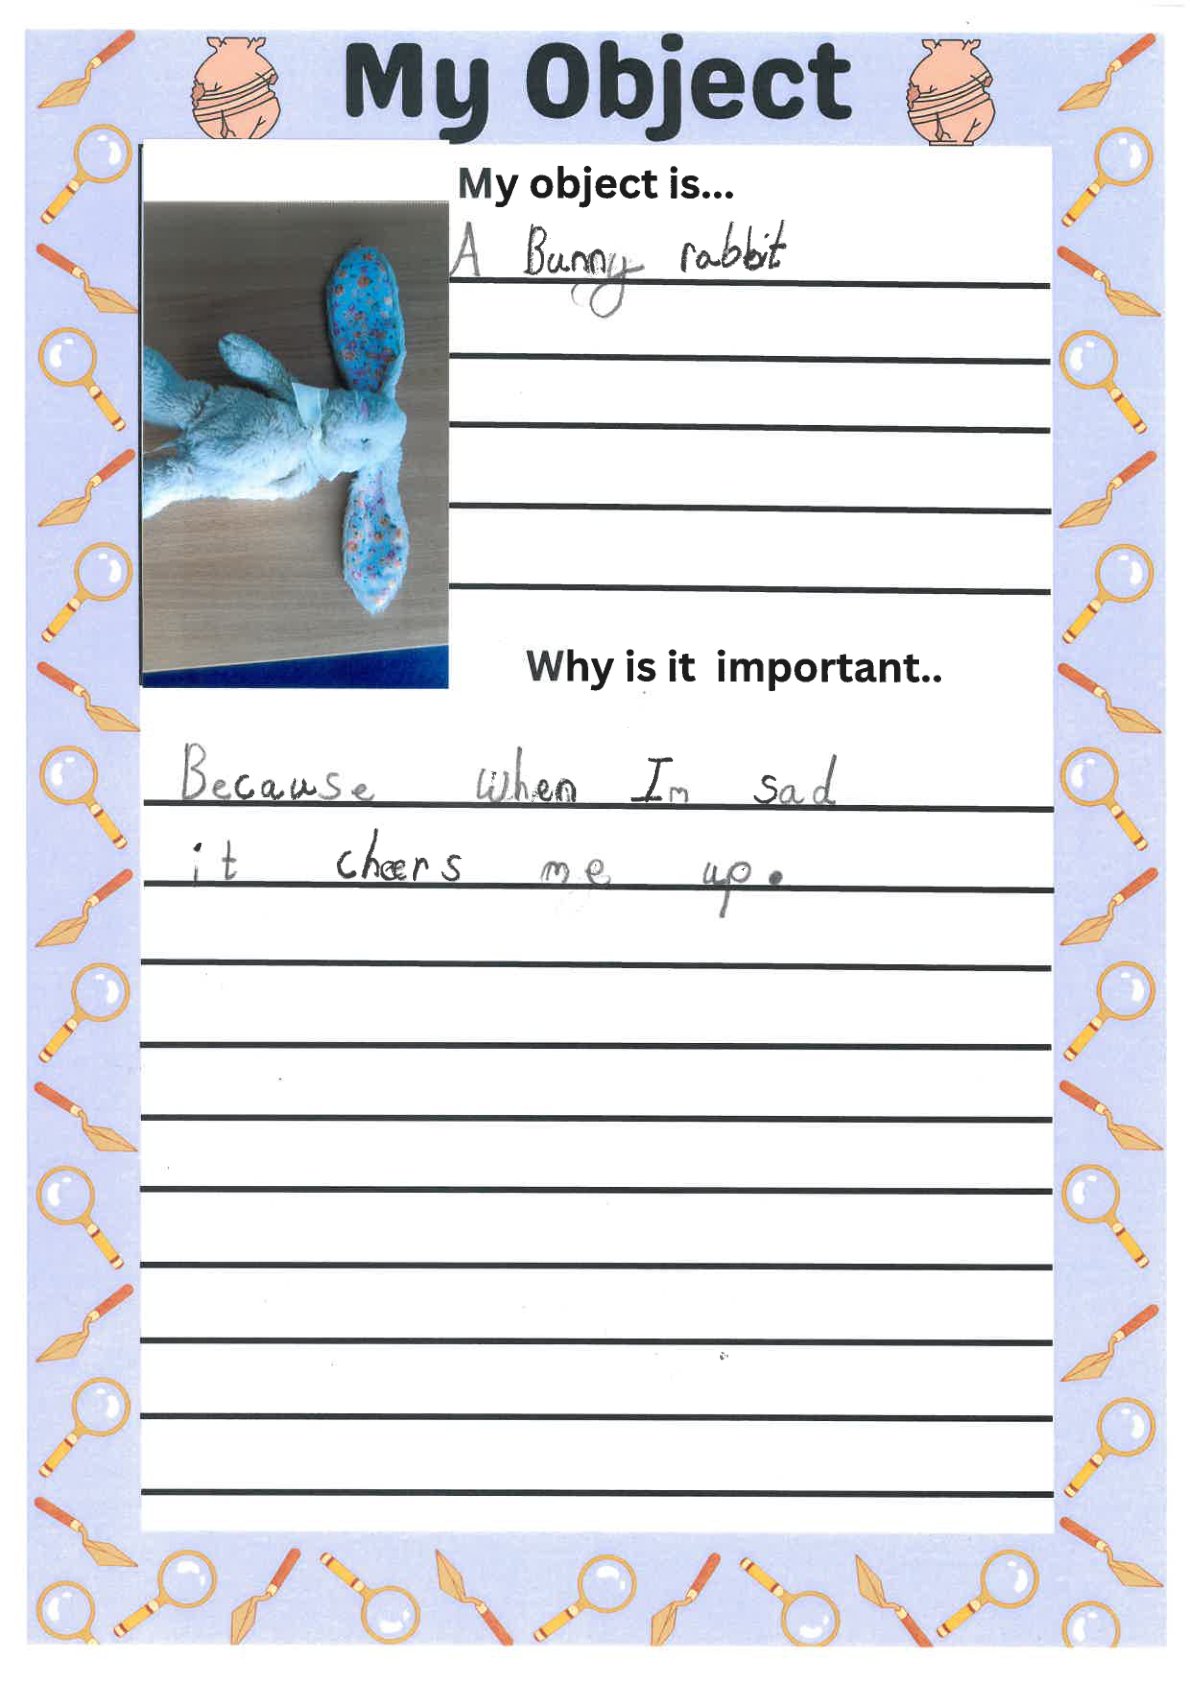 My Object
My object is...
A Bunny rabbit
Why is it important..
Because when Im sad
it cheers me up.